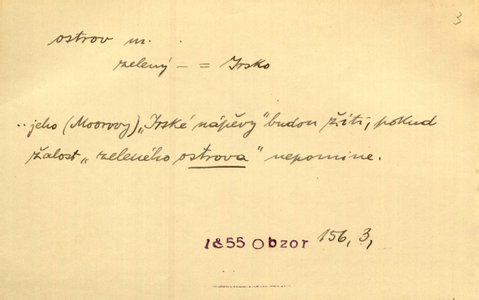 3
ostrov m.
zelený – = Irsko
.. jeho (Moorovy) „Irské nápěvy" budou žíti, pokud
žalost „zeleného ostrova" nepomine.
1855 Obzor 156, 3,